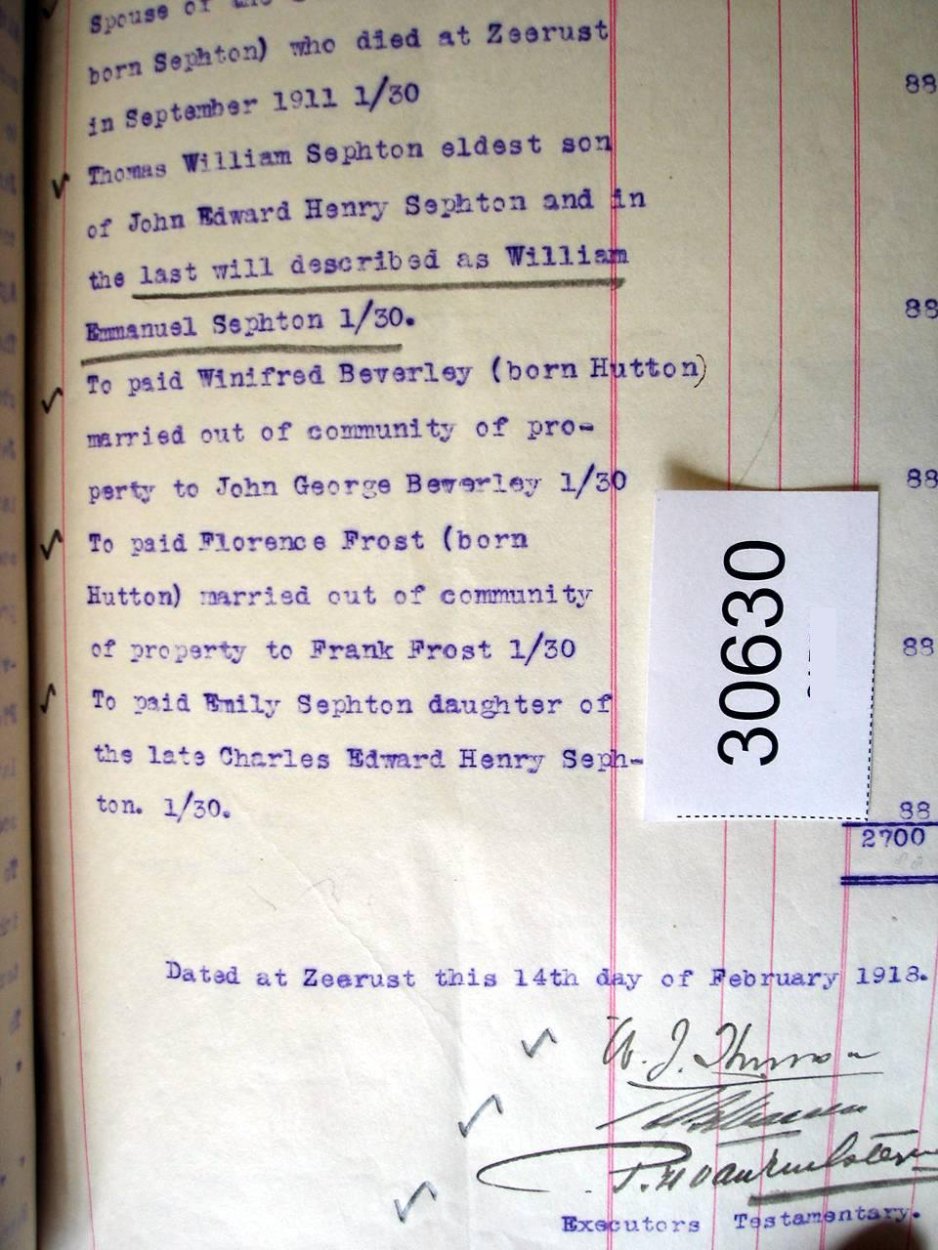 Spouse of the
born Sephton) who died at Zeerust
in September 1911 1/30 88
Thomas William Sephton eldest son
of John Edward Henry Sephton and in
the last will described as William
Emmanuel Sephton 1/30. 88
To paid Winifred Beverley (born Hutton)
married out of community of pro-
perty to John George Beverley 1/30 88
To paid Florence Frost (born
Hutton) married out of community
of property to Frank Frost 1/30 88
To paid Emily Sephton daughter of
the late Charles Edward Henry Seph-
ton. 1/30. 88
2700
30630
Dated at Zeerust this 14th day of February 1918.
W. J.
Executors Testamentary.